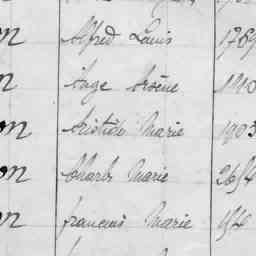 on Alfred Louis 1769
n Ange Arsène 1910
on Aristide Marie 1903
on Charles Marie 2654
on francois Marie 154